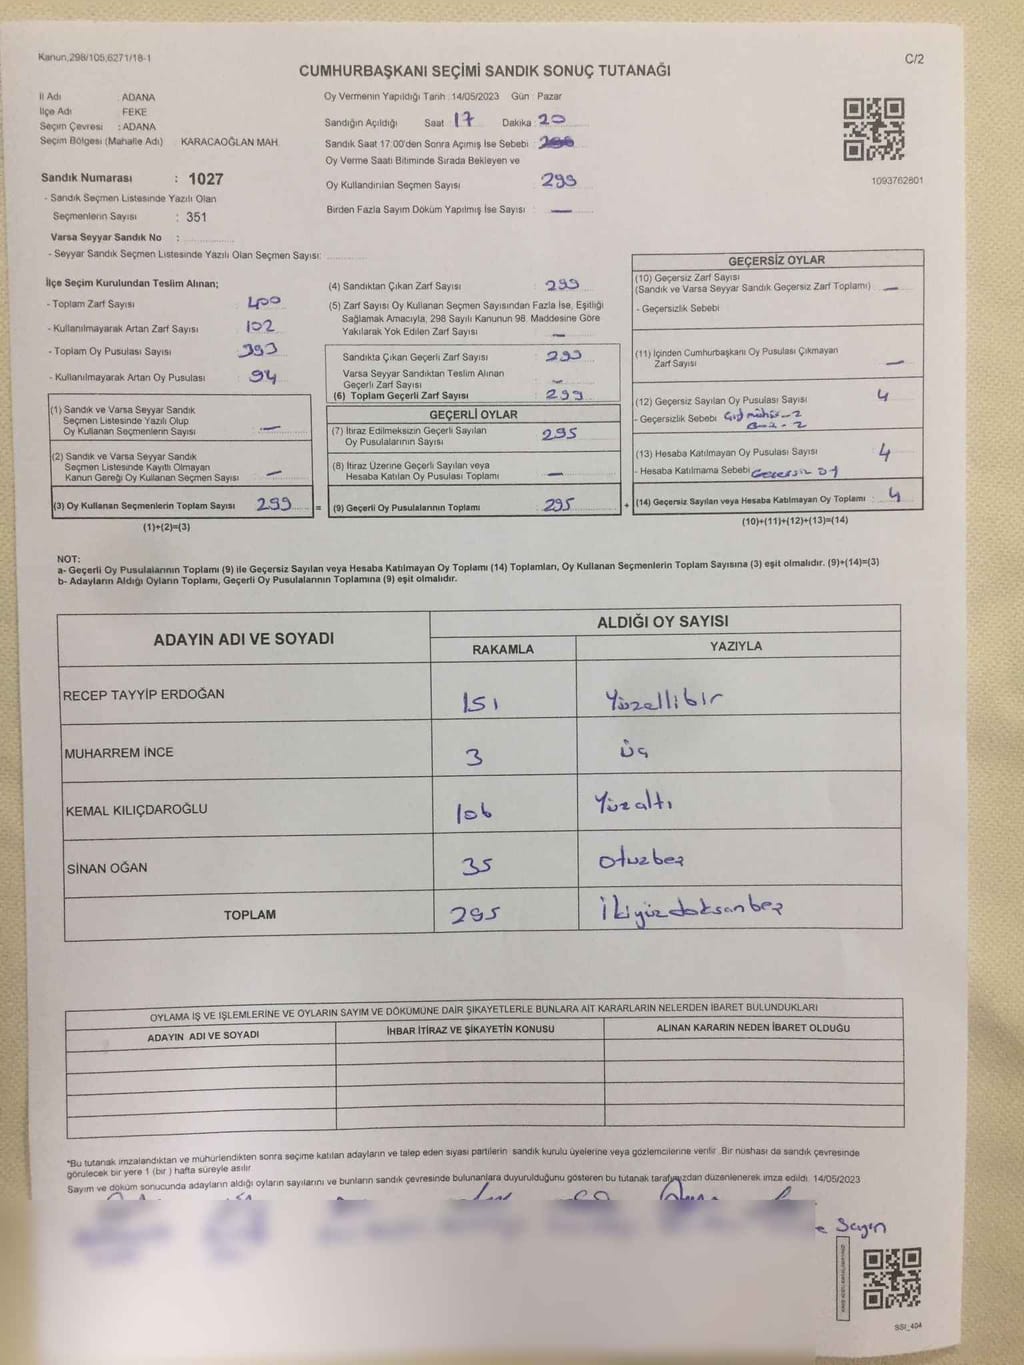 Kanun,298/105,6271/18-1
C/2
CUMHURBAŞKANI SEÇİMİ SANDIK SONUÇ TUTANAĞI
İl Adı : ADANA
İlçe Adı : FEKE
Seçim Çevresi : ADANA
Seçim Bölgesi (Mahalle Adı) : KARACAOĞLAN MAH.
Sandık Numarası : 1027
- Sandık Seçmen Listesinde Yazılı Olan
Seçmenlerin Sayısı : 351
Varsa Seyyar Sandık No :
- Seyyar Sandık Seçmen Listesinde Yazılı Olan Seçmen Sayısı:
Oy Vermenin Yapıldığı Tarih : 14/05/2023 Gün : Pazar
Sandığın Açıldığı Saat 17 Dakika : 20
Sandık Saat 17:00'den Sonra Açımış İse Sebebi :
Oy Verme Saati Bitiminde Sırada Bekleyen ve
Oy Kullandırılan Seçmen Sayısı : 299
Birden Fazla Sayım Döküm Yapılmış İse Sayısı : —
1093762801
İlçe Seçim Kurulundan Teslim Alınan;
- Toplam Zarf Sayısı : 400
- Kullanılmayarak Artan Zarf Sayısı : 102
- Toplam Oy Pusulası Sayısı : 393
- Kullanılmayarak Artan Oy Pusulası : 94
(1) Sandık ve Varsa Seyyar Sandık
Seçmen Listesinde Yazılı Olup
Oy Kullanan Seçmenlerin Sayısı : —
(2) Sandık ve Varsa Seyyar Sandık
Seçmen Listesinde Kayıtlı Olmayan
Kanun Gereği Oy Kullanan Seçmen Sayısı : —
(3) Oy Kullanan Seçmenlerin Toplam Sayısı : 299
(1)+(2)=(3)
(4) Sandıktan Çıkan Zarf Sayısı : 299
(5) Zarf Sayısı Oy Kullanan Seçmen Sayısından Fazla İse, Eşitliği
Sağlamak Amacıyla, 298 Sayılı Kanunun 98. Maddesine Göre
Yakılarak Yok Edilen Zarf Sayısı : —
Sandıkta Çıkan Geçerli Zarf Sayısı : 299
Varsa Seyyar Sandıktan Teslim Alınan
Geçerli Zarf Sayısı : —
(6) Toplam Geçerli Zarf Sayısı : 299
GEÇERLİ OYLAR
(7) İtiraz Edilmeksizin Geçerli Sayılan
Oy Pusulalarının Sayısı : 295
(8) İtiraz Üzerine Geçerli Sayılan veya
Hesaba Katılan Oy Pusulası Toplamı : —
= (9) Geçerli Oy Pusulalarının Toplamı : 295
GEÇERSİZ OYLAR
(10) Geçersiz Zarf Sayısı
(Sandık ve Varsa Seyyar Sandık Geçersiz Zarf Toplamı) : —
- Geçersizlik Sebebi
(11) İçinden Cumhurbaşkanı Oy Pusulası Çıkmayan
Zarf Sayısı : —
(12) Geçersiz Sayılan Oy Pusulası Sayısı : 4
- Geçersizlik Sebebi
(13) Hesaba Katılmayan Oy Pusulası Sayısı : 4
- Hesaba Katılmama Sebebi Geçersiz oy
+ (14) Geçersiz Sayılan veya Hesaba Katılmayan Oy Toplamı : 4
(10)+(11)+(12)+(13)=(14)
NOT:
a- Geçerli Oy Pusulalarının Toplamı (9) ile Geçersiz Sayılan veya Hesaba Katılmayan Oy Toplamı (14) Toplamları, Oy Kullanan Seçmenlerin Toplam Sayısına (3) eşit olmalıdır. (9)+(14)=(3)
b- Adayların Aldığı Oyların Toplamı, Geçerli Oy Pusulalarının Toplamına (9) eşit olmalıdır.
ADAYIN ADI VE SOYADI
ALDIĞI OY SAYISI
RAKAMLA YAZIYLA
RECEP TAYYİP ERDOĞAN 151 Yüzellibir
MUHARREM İNCE 3 üç
KEMAL KILIÇDAROĞLU 106 Yüzaltı
SİNAN OĞAN 35 otuzbeş
TOPLAM 295 İkiyüzdoksanbeş
OYLAMA İŞ VE İŞLEMLERİNE VE OYLARIN SAYIM VE DÖKÜMÜNE DAİR ŞİKAYETLERLE BUNLARA AİT KARARLARIN NELERDEN İBARET BULUNDUKLARI
ADAYIN ADI VE SOYADI İHBAR İTİRAZ VE ŞİKAYETİN KONUSU ALINAN KARARIN NEDEN İBARET OLDUĞU
*Bu tutanak imzalandıktan ve mühürlendikten sonra seçime katılan adayların ve talep eden siyasi partilerin sandık kurulu üyelerine veya gözlemcilerine verilir. Bir nüshası da sandık çevresinde
görülecek bir yere 1 (bir) hafta süreyle asılır.
Sayım ve döküm sonucunda adayların aldığı oyların sayılarını ve bunların sandık çevresinde bulunanlara duyurulduğunu gösteren bu tutanak tarafımızdan düzenlenerek imza edildi. 14/05/2023
Sayın
SSI_404